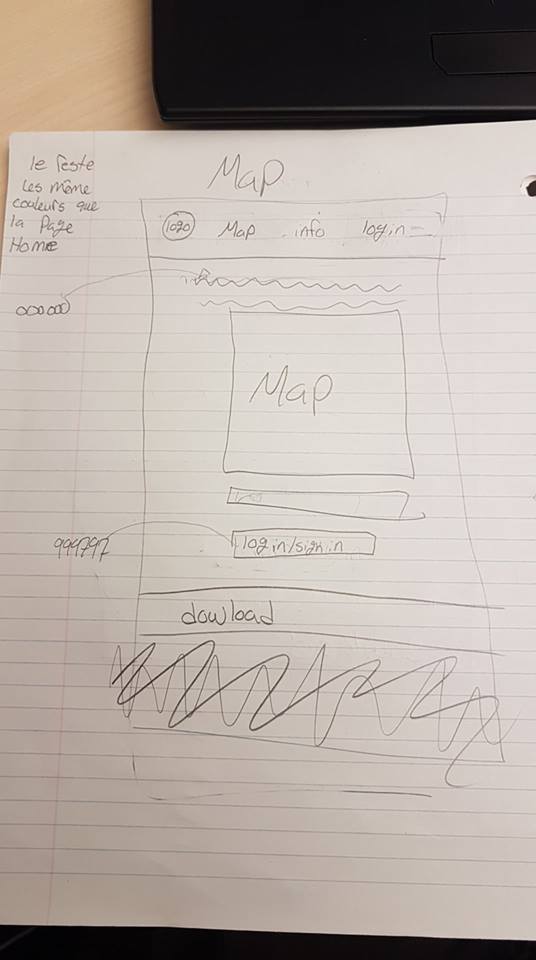 Map
le reste
les même
couleurs que
la Page
Home
logo Map info login
000000
Map
999797
login/sign in
dowload